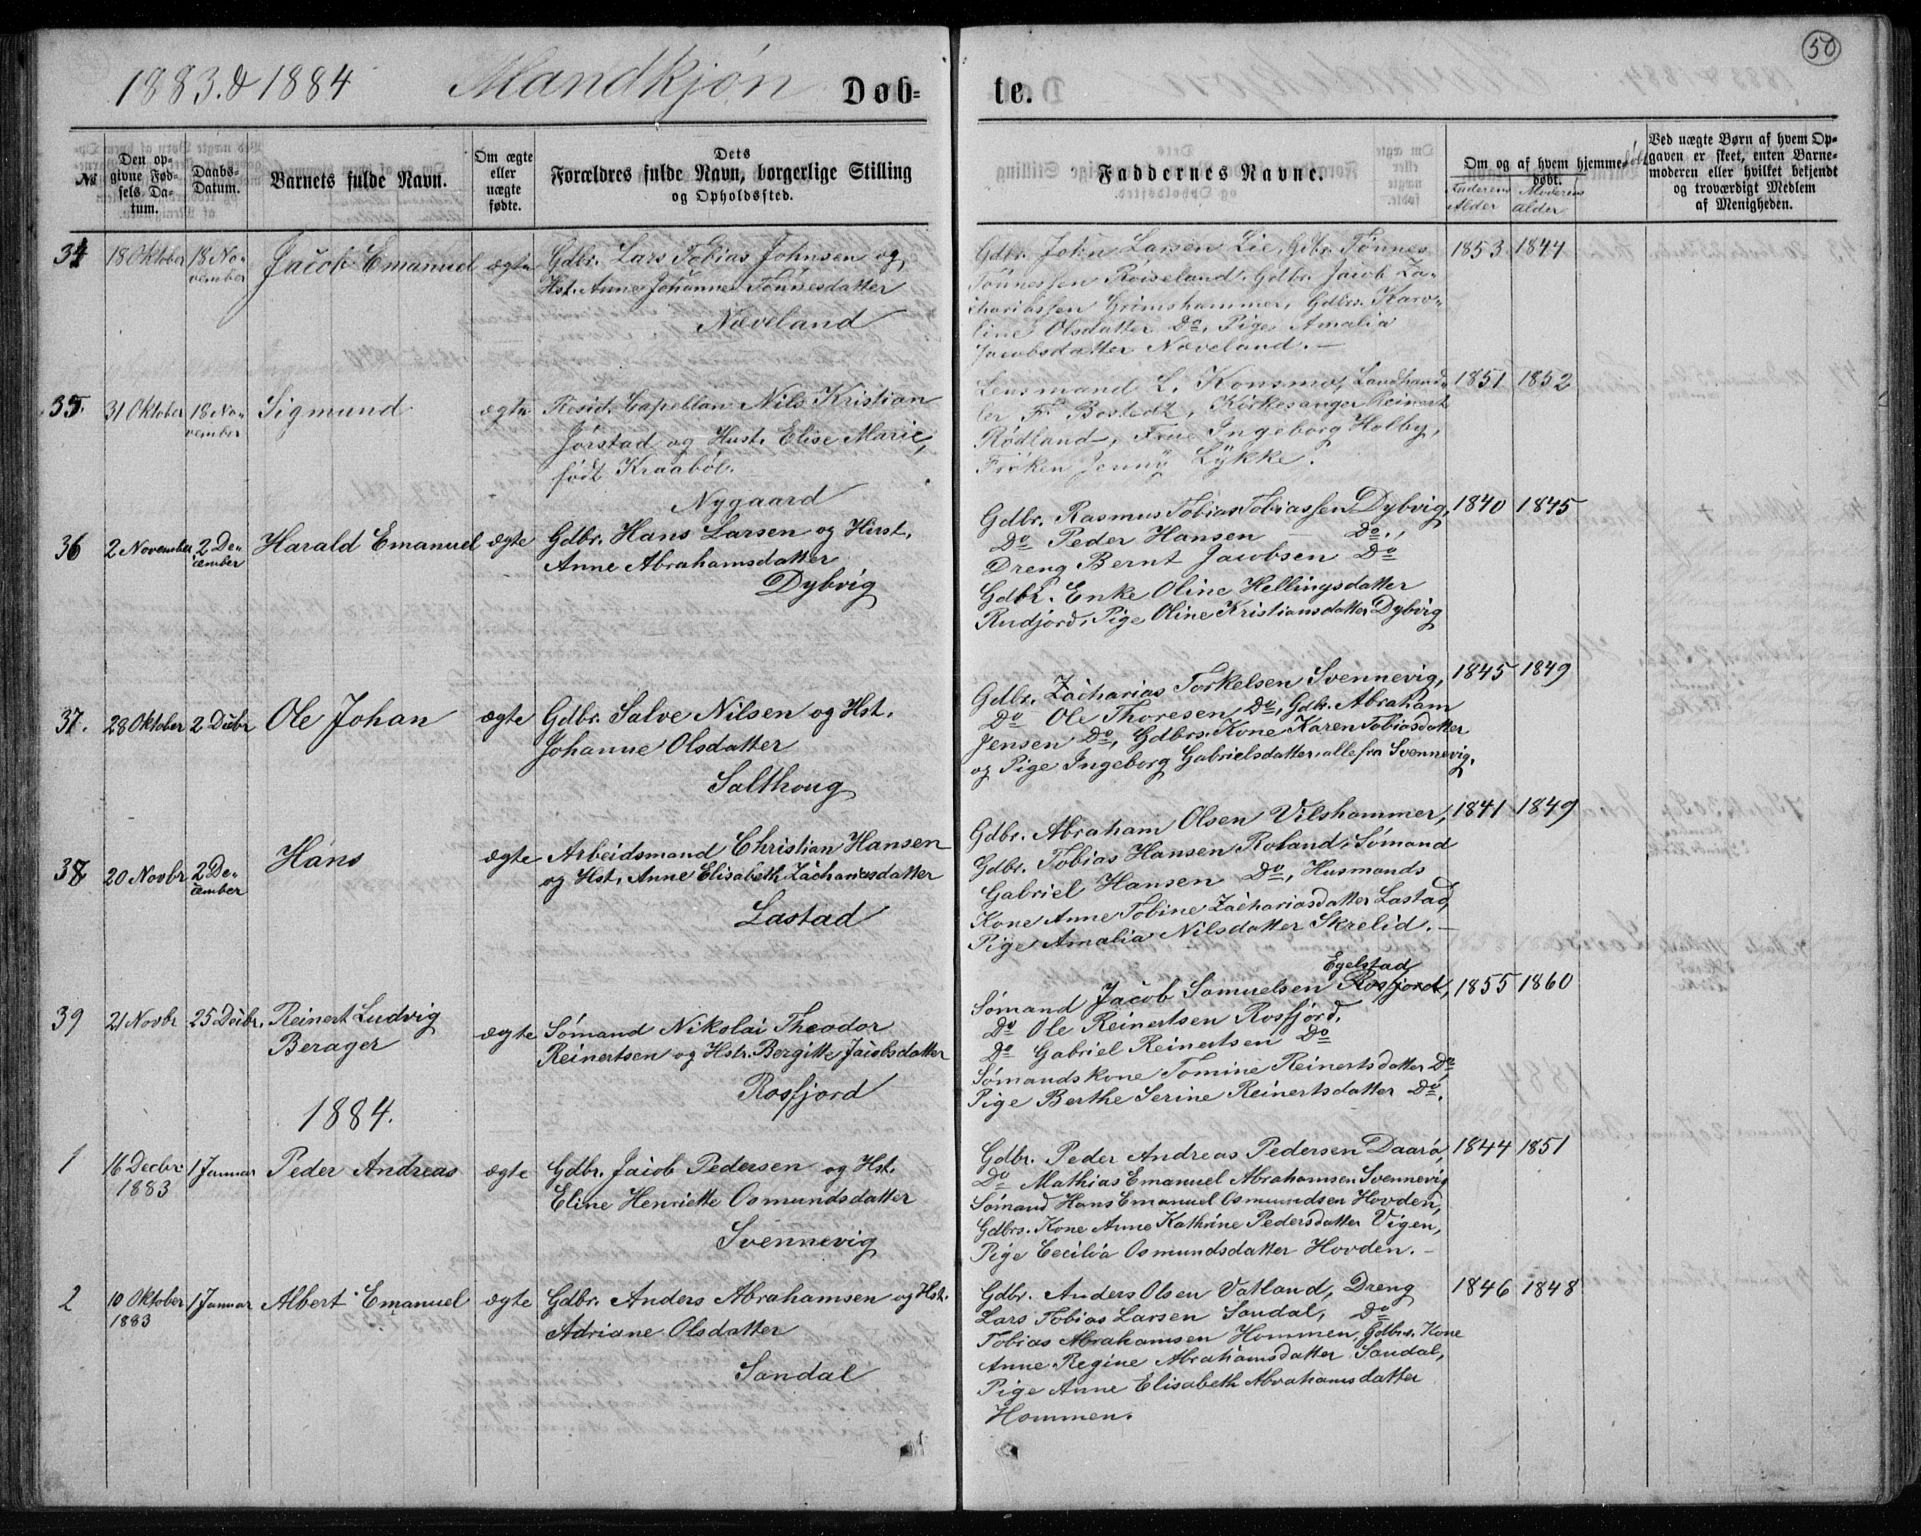 50
1883. & 1884 Mandkjøn Døb= te.
No
Den op-
givne Fød-
sels Da-
tum.
Daabs-
Datum.
Barnets fulde Navn.
Om ægte
eller
uægte
fødte.
Dets
Forældres fulde Navn, borgerlige Stilling
og Opholdssted.
Faddernes Navne.
Om og af hvem hjemme-
døbt.
Faderens
Alder
Moderens
alder
Ved uægte Børn af hvem Op-
gaven er skeet, enten Barne-
moderen eller hvilket bekjendt
og troværdigt Medlem
af Menigheden.
34 18 Oktober 18 No-
vember
Jacob Emanuel ægte
Gdbr. Lars Tobias Johnsen og
Hst. Anne Johanne Tønnesdatter
Næveland
Gdbr. John Larsen Lie, Gdbr. Tønnes
Tønnessen Røiseland, Gdbr. Jacob Za-
chariassen Grimshammer, Gdbrs. Karo-
line Olsdatter Do, Pige Amalia
Jacobsdatter Næveland. —
1853 1844
35. 31 Oktober 18 No-
vember
Sigmund ægte
Resid. Capellan Nils Kristian
Jørstad og Hust. Elise Marie,
født Kraabøl.
Nygaard
Lensmand L. Konsmo, Landhand-
ler F. Bostedt, Kirkesanger Reinert
Rødland, Frue Ingeborg Holby,
Frøken Jenny Lykke.
1851 1852
36 2 November 2 De-
cember
Harald Emanuel ægte
Gdbr. Hans Larsen og Hust.
Anne Abrahamsdatter
Dybvig
Gdbr. Rasmus Tobias Tobiassen Dybvig,
Do Peder Hansen Do.,
Dreng Bernt Jacobsen Do
Gdbr. Enke Oline Hellingsdatter
Rudjord, Pige Oline Kristiansdatter Dybvig
1840 1845
37. 28 Oktober 2 Decbr
Ole Johan ægte
Gdbr. Salve Nilsen og Hst.
Johanne Olsdatter
Salthoug
Gdbr. Zacharias Torkelsen Svennevig,
Do Ole Thoresen, Do, Gdbr. Abraham
Jensen Do, Gdbrs. Kone Karen Tobiasdatter
og Pige Ingeborg Gabrielsdatter, alle fra Svennevig.
1845 1849
38 20 Novbr 2 De-
cember
Hans ægte
Arbeidsmand Christian Hansen
og Hst. Anne Elisabeth Zachariasdatter
Lastad
Gdbr. Abraham Olsen Vilshammer,
Gdbr. Tobias Hansen Roland, Sømand
Gabriel Hansen Do, Husmands
Kone Anne Tobine Zachariasdatter Lastad,
Pige Amalia Nilsdatter Skrelid. —
1841 1849
39 21 Novbr 25 Decbr.
Reinert Ludvig
Berager
ægte
Sømand Nikolai Theodor
Reinertsen og Hstr. Bergitte Jacobsdatter
Rosfjord
Egelstad
Sømand Jacob Samuelsen Rosfjord,
Do Ole Reinertsen Rosfjord,
Do Gabriel Reinertsen Do
Sømandskone Tomine Reinertsdatter Do,
Pige Berthe Serine Reinertsdatter Do.
1855 1860
1884.
1 16 Decbr
1883
1 Januar
Peder Andreas ægte
Gdbr. Jacob Pedersen og Hst.
Eline Henriette Osmundsdatter
Svennevig
Gdbr. Peder Andreas Pedersen Daarø,
Do Mathias Emanuel Abrahamsen Svennevig
Sømand Hans Emanuel Osmundsen Hovden,
Gdbrs. Kone Anne Kathrine Pedersdatter Vigen,
Pige Cecilia Osmundsdatter Hovden. —
1844 1851
2 10 Oktober
1883
1 Januar
Albert Emanuel ægte
Gdbr. Anders Abrahamsen og Hst.
Adriane Olsdatter
Sandal
Gdbr. Anders Olsen Vatland, Dreng
Lars Tobias Larsen Sandal, Do
Tobias Abrahamsen Hommen, Gdbrs. Kone
Anne Regine Abrahamsdatter Sandal,
Pige Anne Elisabeth Abrahamsdatter
Hommen.
1846 1848